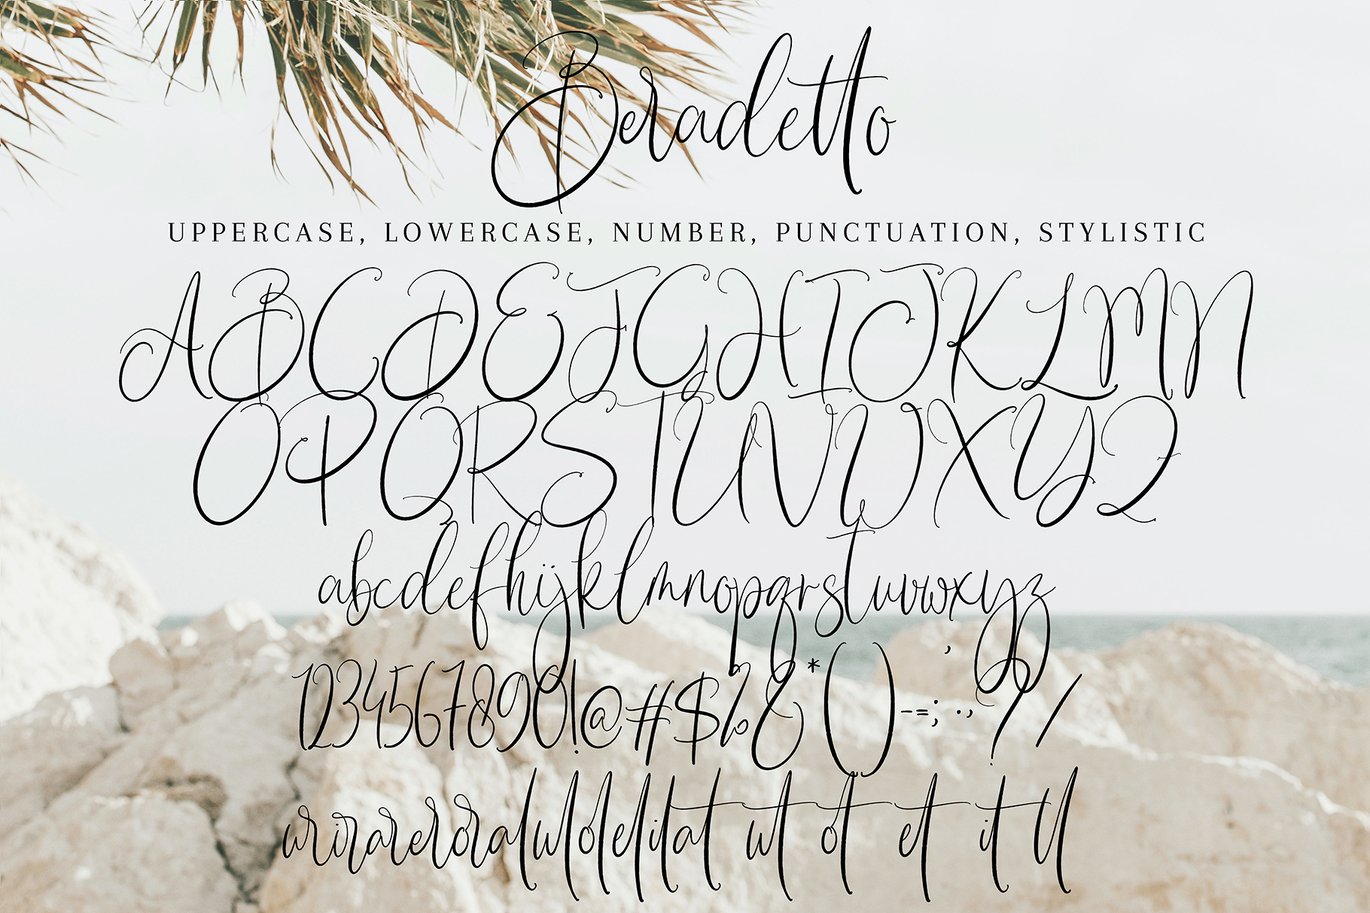 Beradetto
UPPERCASE, LOWERCASE, NUMBER, PUNCTUATION, STYLISTIC
ABCDEFGHIJKLMN
OPQRSTUVWXYZ
abcdefhijklmnopqrstuvwxyz
1234567890!@#$%&*()-=;'.,?/
urirareroralulolelilat ut ot et it ll